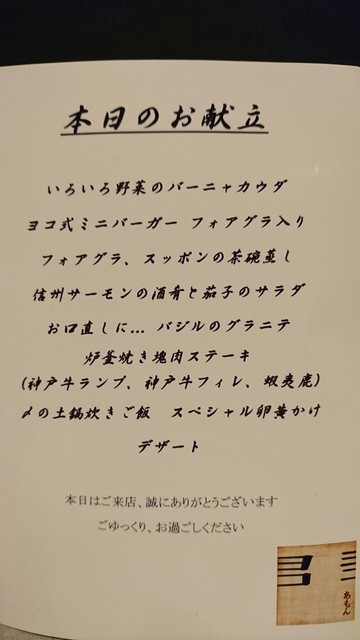 本日のお献立
いろいろ野菜のバーニャカウダ
ヨコ式ミニバーガー フォアグラ入り
フォアグラ、スッポンの茶碗蒸し
信州サーモンの酒肴と茄子のサラダ
お口直しに… バジルのグラニテ
炉釜焼き塊肉ステーキ
(神戸牛ランプ、神戸牛フィレ、蝦夷鹿)
〆の土鍋炊きご飯 スペシャル卵黄かけ
デザート
本日はご来店、誠にありがとうございます
ごゆっくり、お過ごしください
あもん